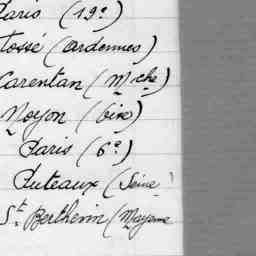 Paris (19e)
Tossé (Ardennes)
Carentan (Mche)
Noyon (Oise)
Paris (6e)
Puteaux (Seine
St Berthevin (Mayenne